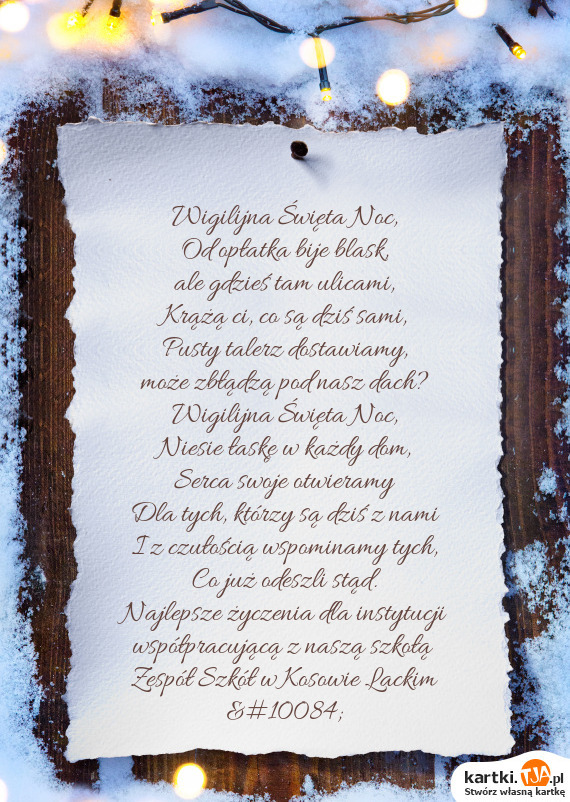 Wigilijna Święta Noc,
Od opłatka bije blask,
ale gdzieś tam ulicami,
Krążą ci, co są dziś sami,
Pusty talerz dostawiamy,
może zbłądzą pod nasz dach?
Wigilijna Święta Noc,
Niesie łaskę w każdy dom,
Serca swoje otwieramy
Dla tych, którzy są dziś z nami
I z czułością wspominamy tych,
Co już odeszli stąd.
Najlepsze życzenia dla instytucji
współpracującą z naszą szkołą
Zespół Szkół w Kosowie Lackim
&#10084;
kartki.TJA.pl
Stwórz własną kartkę